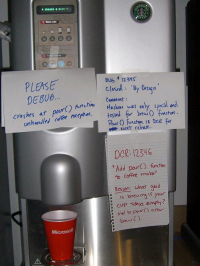 PLEASE
DEBUG..
crashes at pour() function
unhandled coffee exception.
Bug # 12395
Closed: "By Design"
Comments:
Machine was only spec'd and
tested for brew() function.
Pour() function is DCR for
next release.
DCR: 12396
"Add pour() function
to coffee maker"
Reason: What good
is brewing if your
cup stays empty?
Microsoft